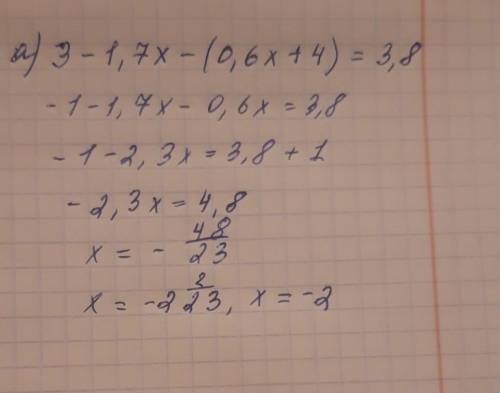 а) 3 - 1,7x - (0,6x + 4) = 3,8
- 1 - 1,7x - 0,6x = 3,8
- 1 - 2,3x = 3,8 + 1
- 2,3x = 4,8
x = - 48/23
x = -2 2/23, x = -2